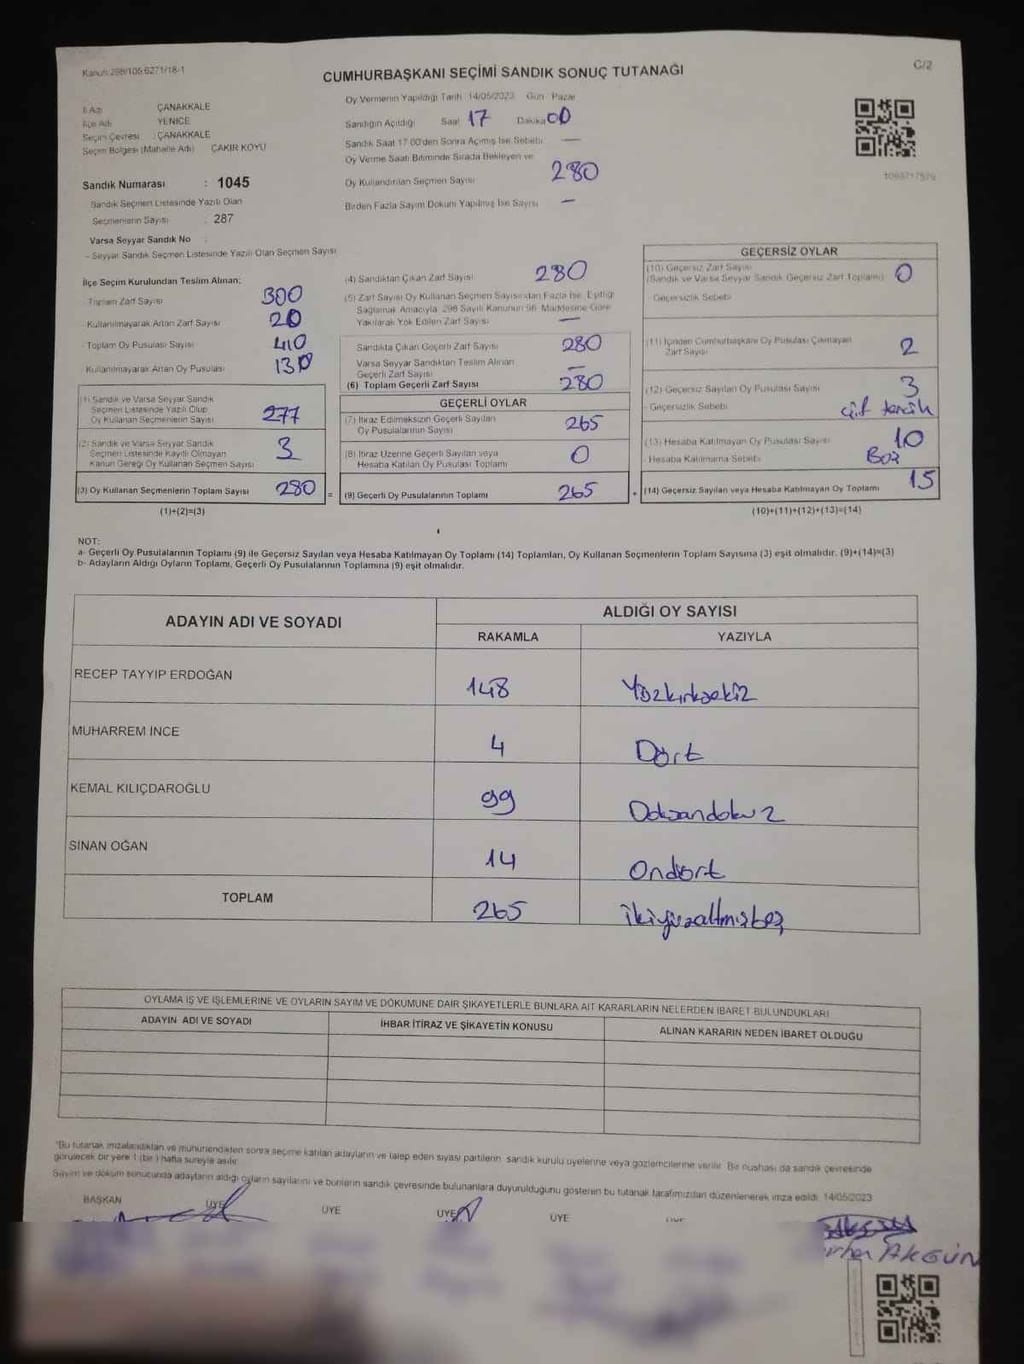 Kanun:298/105 6271/18-1
C/2
CUMHURBAŞKANI SEÇİMİ SANDIK SONUÇ TUTANAĞI
İl Adı : ÇANAKKALE
İlçe Adı : YENİCE
Seçim Çevresi : ÇANAKKALE
Seçim Bölgesi (Mahalle Adı) : ÇAKIR KÖYÜ
Sandık Numarası : 1045
Sandık Seçmen Listesinde Yazılı Olan
Seçmenlerin Sayısı : 287
Varsa Seyyar Sandık No :
- Seyyar Sandık Seçmen Listesinde Yazılı Olan Seçmen Sayısı
Oy Vermenin Yapıldığı Tarih : 14/05/2023 Gün : Pazar
Sandığın Açıldığı Saat 17 Dakika 00
Sandık Saat 17.00'den Sonra Açılmış İse Sebebi : —
Oy Verme Saati Bitiminde Sırada Bekleyen ve
Oy Kullandırılan Seçmen Sayısı 280
Birden Fazla Sayım Döküm Yapılmış İse Sayısı —
İlçe Seçim Kurulundan Teslim Alınan;
Toplam Zarf Sayısı 300
- Kullanılmayarak Artan Zarf Sayısı 20
- Toplam Oy Pusulası Sayısı 410
- Kullanılmayarak Artan Oy Pusulası 130
(1) Sandık ve Varsa Seyyar Sandık
Seçmen Listesinde Yazılı Olup
Oy Kullanan Seçmenlerin Sayısı 277
(2) Sandık ve Varsa Seyyar Sandık
Seçmen Listesinde Kayıtlı Olmayan
Kanun Gereği Oy Kullanan Seçmen Sayısı 3
(3) Oy Kullanan Seçmenlerin Toplam Sayısı 280 =
(1)+(2)=(3)
(4) Sandıktan Çıkan Zarf Sayısı 280
(5) Zarf Sayısı Oy Kullanan Seçmen Sayısından Fazla İse, Eşitliği
Sağlamak Amacıyla, 298 Sayılı Kanunun 98. Maddesine Göre
Yakılarak Yok Edilen Zarf Sayısı —
Sandıkta Çıkan Geçerli Zarf Sayısı 280
Varsa Seyyar Sandıktan Teslim Alınan
Geçerli Zarf Sayısı —
(6) Toplam Geçerli Zarf Sayısı 280
GEÇERLİ OYLAR
(7) İtiraz Edilmeksizin Geçerli Sayılan
Oy Pusulalarının Sayısı 265
(8) İtiraz Üzerine Geçerli Sayılan veya
Hesaba Katılan Oy Pusulası Toplamı 0
(9) Geçerli Oy Pusulalarının Toplamı 265 +
GEÇERSİZ OYLAR
(10) Geçersiz Zarf Sayısı
(Sandık ve Varsa Seyyar Sandık Geçersiz Zarf Toplamı) 0
Geçersizlik Sebebi
(11) İçinden Cumhurbaşkanı Oy Pusulası Çıkmayan
Zarf Sayısı 2
(12) Geçersiz Sayılan Oy Pusulası Sayısı 3
- Geçersizlik Sebebi çift tercih
(13) Hesaba Katılmayan Oy Pusulası Sayısı 10
- Hesaba Katılmama Sebebi Boş
(14) Geçersiz Sayılan veya Hesaba Katılmayan Oy Toplamı 15
(10)+(11)+(12)+(13)=(14)
NOT:
a- Geçerli Oy Pusulalarının Toplamı (9) ile Geçersiz Sayılan veya Hesaba Katılmayan Oy Toplamı (14) Toplamları, Oy Kullanan Seçmenlerin Toplam Sayısına (3) eşit olmalıdır. (9)+(14)=(3)
b- Adayların Aldığı Oyların Toplamı, Geçerli Oy Pusulalarının Toplamına (9) eşit olmalıdır.
ADAYIN ADI VE SOYADI
ALDIĞI OY SAYISI
RAKAMLA YAZIYLA
RECEP TAYYİP ERDOĞAN 148 Yüzkırksekiz
MUHARREM İNCE 4 Dört
KEMAL KILIÇDAROĞLU 99 Doksandokuz
SİNAN OĞAN 14 Ondört
TOPLAM 265 ikiyüzaltmışbeş
OYLAMA İŞ VE İŞLEMLERİNE VE OYLARIN SAYIM VE DÖKÜMÜNE DAİR ŞİKAYETLERLE BUNLARA AİT KARARLARIN NELERDEN İBARET BULUNDUKLARI
ADAYIN ADI VE SOYADI İHBAR İTİRAZ VE ŞİKAYETİN KONUSU ALINAN KARARIN NEDEN İBARET OLDUĞU
"Bu tutanak imzalandıktan ve mühürlendikten sonra seçime katılan adayların ve talep eden siyasi partilerin, sandık kurulu üyelerine veya gözlemcilerine verilir. Bir nüshası da sandık çevresinde
görülecek bir yere 1 (bir) hafta süreyle asılır.
Sayım ve döküm sonucunda adayların aldığı oyların sayılarını ve bunların sandık çevresinde bulunanlara duyurulduğunu gösteren bu tutanak tarafımızdan düzenlenerek imza edildi. 14/05/2023
BAŞKAN ÜYE ÜYE ÜYE ÜYE
AKGÜN